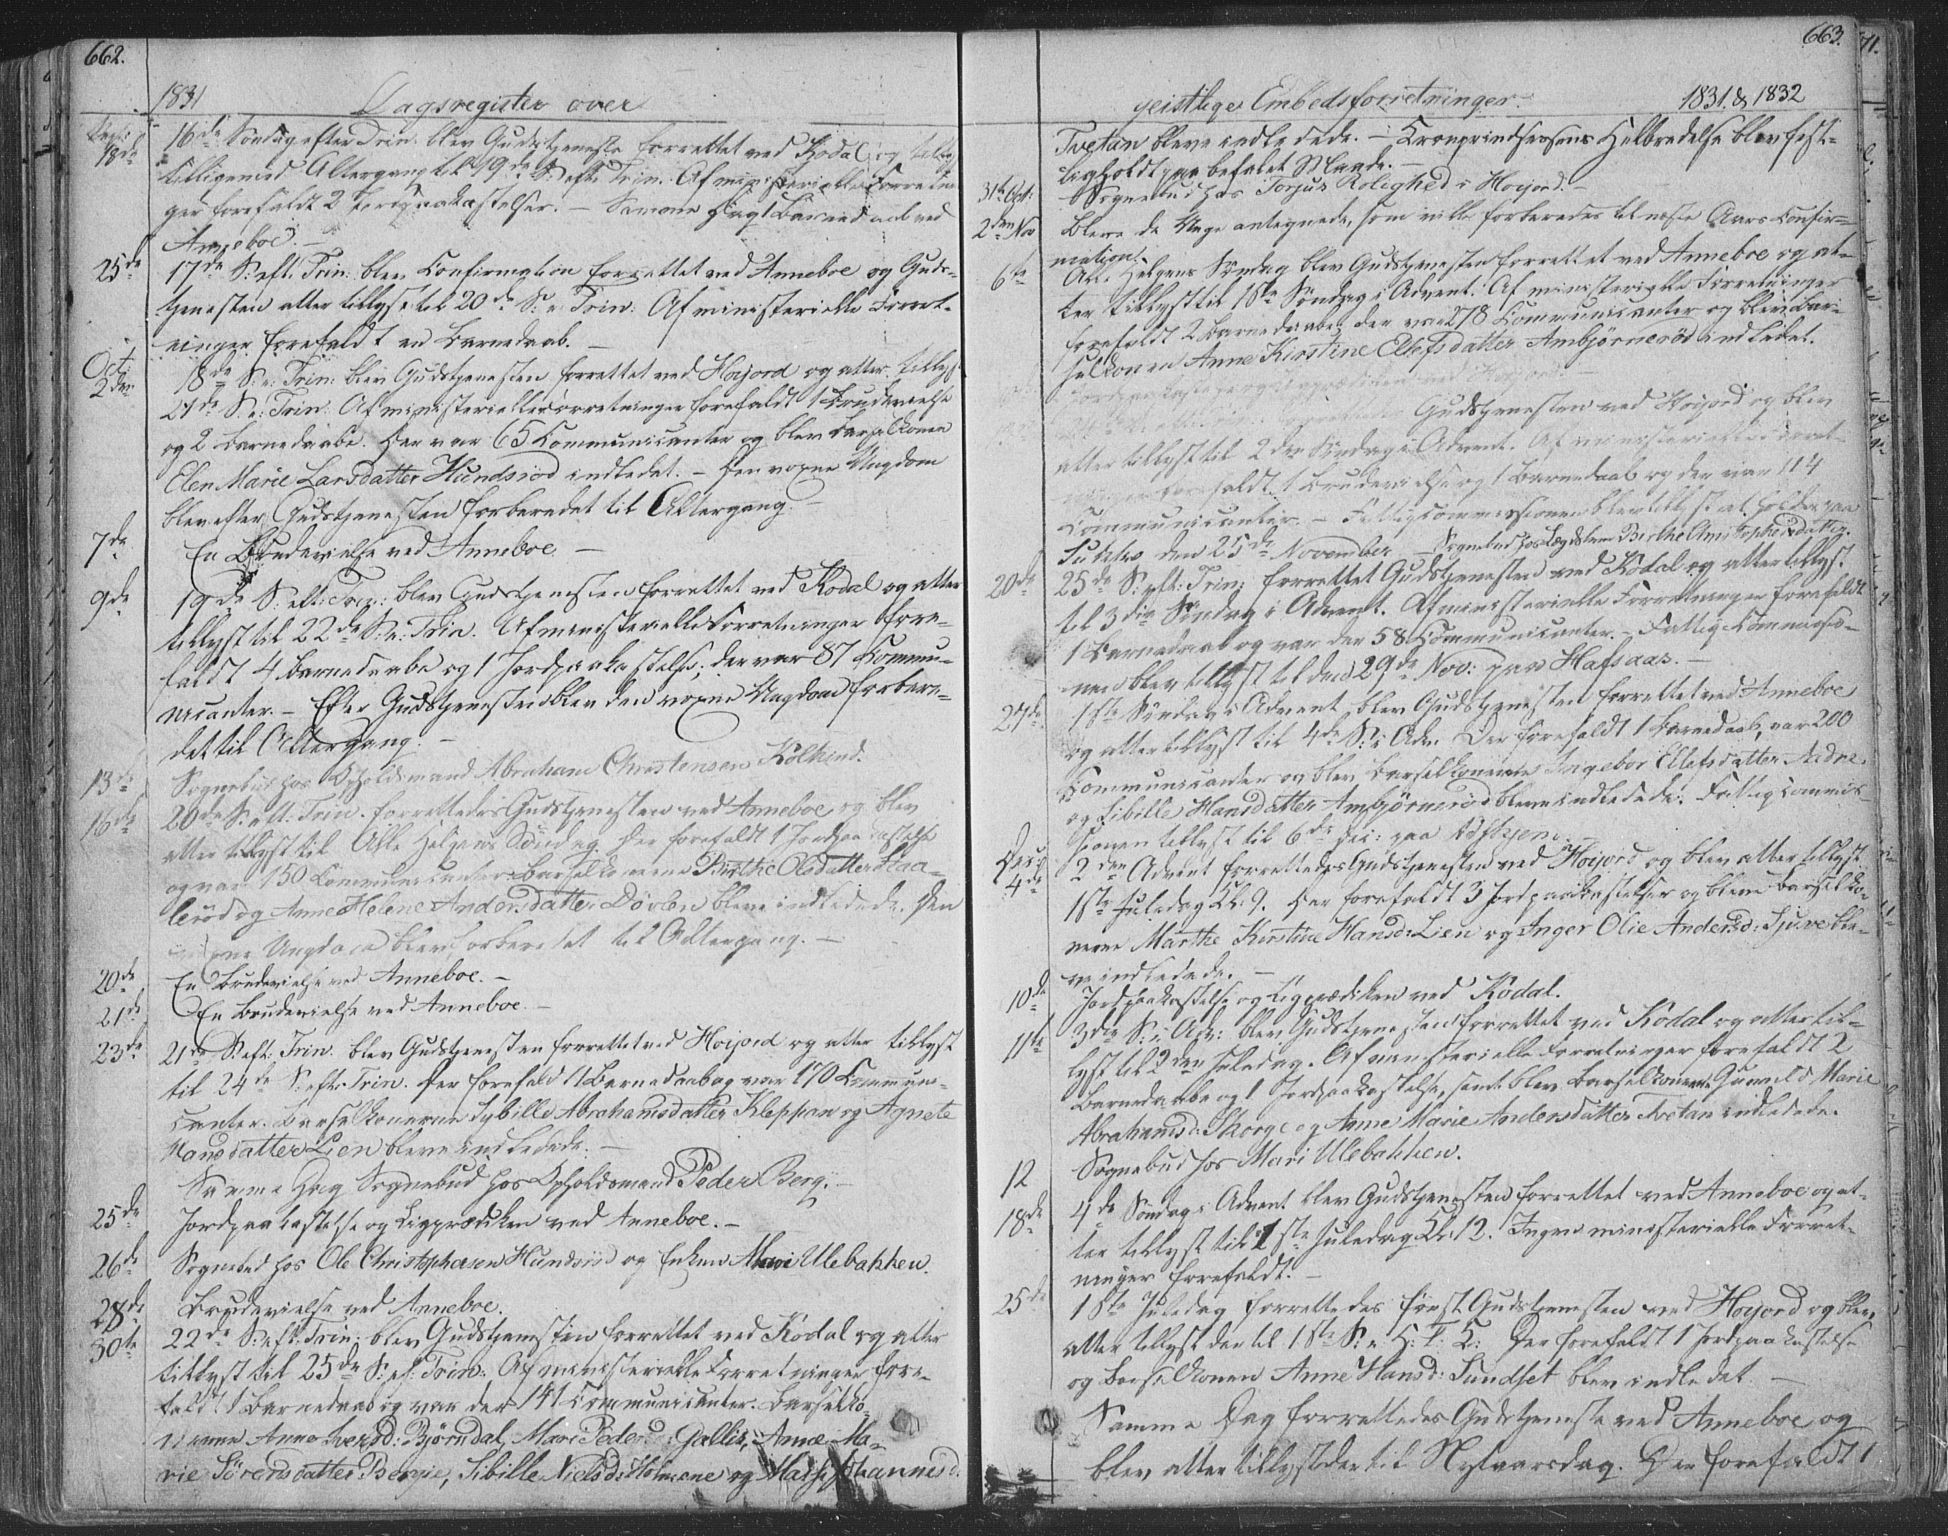 662.
1831 Dagsregister over
Sept:
18de 16de Søndag efter Trin. blev Gudstjeneste forrettet ved Kodal og tillyst
tilligemed Altergang til 19de S. eft. Trin. Af ministerielle Forretnin-
ger forefaldt 2 Jordpaakastelser. – Samme Dag 1 Barnedaab ved
Anneboe. –
25de 17de S: eft: Trin: blev Confirmation forrettet ved Anneboe og Guds-
tjenesten atter tillyst til 20de S: e: Trin: Af ministerielle Forret-
ninger forefaldt en Barnedaab. –
Oct:
2den 18de S: e: Trin: blev Gudstjenesten forrettet ved Høijord og atter tillyst
21de S. e: Trin: Af ministerielle Forretninger forefaldt 1 Brudevielse
og 2 Barnedaabe. Der var 65 Communicanter og blev Barselkonen
Elen Marie Larsdatter Hundsrød indledet. – Den voxne Ungdom
blev efter Gudstjenesten forberedet til Altergang. –
7de En Brudevielse ved Anneboe. –
9de 19de S: eft: Trin: blev Gudstjenesten forrettet ved Kodal og atter
tillyst til 22de S. e: Trin. Af ministerielle Forretninger fore-
faldt 4 Barnedaabe og 1 Jordpaakastelse; der var 87 Commu-
nicanter. – Efter Gudstjenesten blev den voxne Ungdom forbere-
det til Altergang. –
13de Sognebud hos Opholdsmand Abraham Christensen Kolkind.
16de 20de S. eft: Trin. forrettedes Gudstjenesten ved Anneboe og blev
atter tillyst til Alle Helgens Søndag. Der forefaldt 1 Jordpaakastelse
og var 150 Communicanter. Barselkonerne Birthe Olsdatter Haa-
lerød og Anne Helene Andersdatter Dørlen bleve indledede. Den
voxne Ungdom blev forberedet til Altergang. –
20de En Brudevielse ved Anneboe. –
21de En Brudevielse ved Anneboe. –
23de 21de S: eft: Trin. blev Gudstjenesten forrettet ved Høijord og atter tillyst
til 24de S: eft: Trin. Der forefaldt 1 Barnedaab og var 170 Communi-
canter. Barselkonerne Sybille Abrahamsdatter Kleppan og Agnete
Hansdatter Lien bleve indledede. –
Samme Dag Sognebud hos Opholdsmand Peder Berg. –
25de Jordpaakastelse og Ligprædiken ved Anneboe. –
26de Sognebud hos Ole Christophersen Hundsrød og Enken Mari Ulebakken.
28de Brudevielse ved Anneboe.
30te 22de S: eft: Trin: blev Gudstjenesten forrettet ved Kodal og atter
tillyst til 25de S: ef: Trin: Af ministerielle Forretninger fore-
faldt 1 Barnedaab og var der 141 Communicanter. Barselko-
nerne Anne Iversd: Bjørndal, Mari Pedersd: Gallis, Anne Ma-
rie Sørensdatter Bergie, Sibille Nielsd: Holmene og Maria Johannesd:
663.
geistlige Embedsforretninger. 1831. & 1832
Tvetan bleve indledede. – Kronprindsessens Helbredelse blev høit-
ligholdt paa befalet Maade. –
31te Oct: Sognebud hos Torjus Rolighed i Høijord. –
2den Nov Bleve de Unge antegnede, som ville forberedes til næste Aars Confir-
mation.
6te All: Helgens Søndag blev Gudstjenesten forrettet ved Anneboe og at-
ter tillyst til 1ste Søndag i Advent. Af ministerielle Forretninger
forefaldt 2 Barnedaabe, der var 278 Communicanter og blev Bar-
selkonen Anne Kirstine Ellefsdatter Ambjørnerød indledet.
Jordpaakastelse og Ligprædiken ved Høijord. –
Gudstjenesten ved Høijord og blev
atter tillyst til 2den Søndag i Advent. Af ministerielle Forret-
ninger forefaldt 1 Brudevielse og 1 Barnedaab og der var 114
Communicanter. – Fattigcommissionen blev tillyst at holdes paa
den 25de November – Sognebud hos Birthe Christophersdatter.
20de 25de S: eft: Trin: forrettet Gudstjenesten ved Kodal og atter tillyst
til 3die Søndag i Advent. Af ministerielle Forretninger forefaldt
1 Barnedaab og var der 58 Communicanter. – Fattig-Commissio-
nen blev tillyst til den 29de Nov: paa Hafsaas. –
27de 1ste Søndag i Advent blev Gudstjenesten forrettet ved Anneboe
og atter tillyst til 4de S. i Adv. Der forefaldt 1 Barnedaab, var 200
Communicanter og blev Barselkonerne Ingebor Ellefsdatter Nedre
og Sibille Hansdatter Ambjørnerød bleve indledede. Fattigcommis-
sionen tillyst til 6de Dec: paa
Dec:
4de 2den Advent forrettedes Gudstjenesten ved Høijord og blev atter tillyst
1ste Juledag Kl. 9. Der forefaldt 3 Jordpaakastelser og bleve Barselko-
nerne Marthe Kirstine Hansd: Lien og Inger Olie Andersd: Sjuve ble-
ve indledede. –
10de Jordpaakastelse og Ligprædiken ved Kodal.
11te 3die S: i Adv: blev Gudstjenesten forrettet ved Kodal og atter til-
lyst til 2den Juledag. Af ministerielle Forretninger forefaldt 2
Barnedaabe og 1 Jordpaakastelse, samt blev Barselkonerne Gunnild Marie
Abrahamsd: Skorge og Anne Marie Andersdatter Tvetan indledede.
12 Sognebud hos Mari Ulebakken.
18de 4de Søndag i Advent blev Gudstjenesten forrettet ved Anneboe og at-
ter tillyst til 1ste Juledag Kl. 12. Ingen ministerielle Forret-
ninger forefaldt. –
25de 1ste Juledag forrettedes først Gudstjenesten ved Høijord og blev
atter tillyst der til 1ste S: e: H: 3: K: Der forefaldt 1 Jordpaakastelse
og Barselkonen Anne Hansd: Sundset blev indledet. –
Samme Dag forrettedes Gudstjeneste ved Anneboe og
blev atter tillyst der til Nytaarsdag. Der forefaldt 1